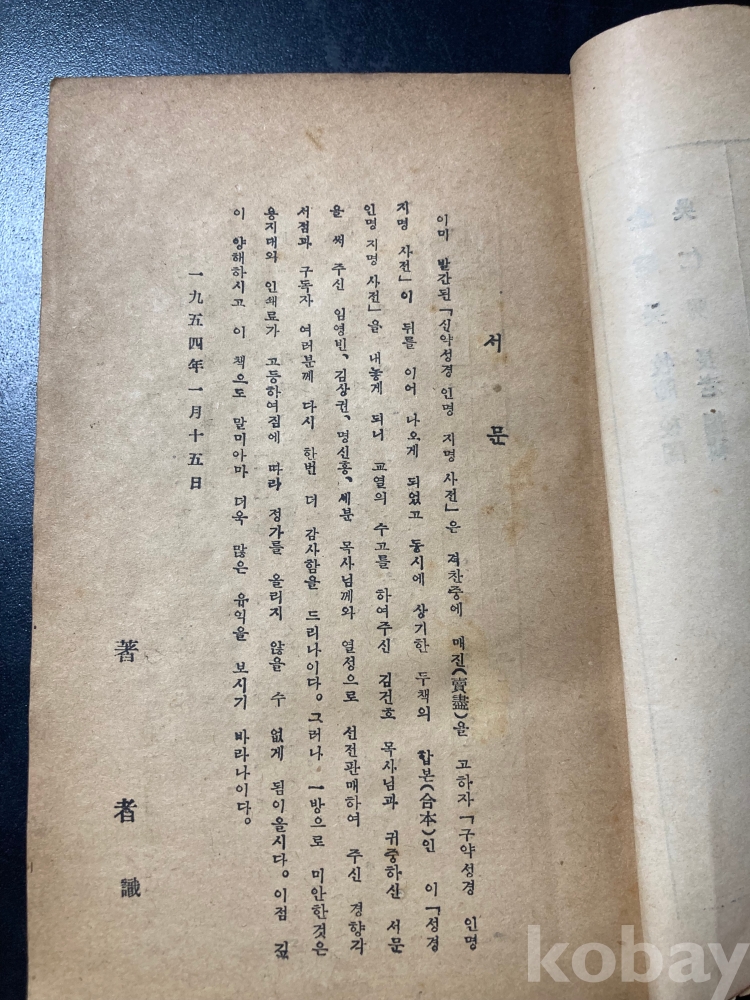 서 문
이미 발간된 「신약성경 인명 지명 사전」은 격찬중에 매진(賣盡)을 고하자 「구약성경 인명
지명 사전」이 뒤를 이어 나오게 되었고 동시에 상기한 두책의 합본(合本)인 이 「성경
인명 지명 사전」을 내놓게 되니 교열의 수고를 하여주신 김건호 목사님과 귀중하신 서문
을 써 주신 임영빈、김상권、명신홍、세분 목사님께와 열성으로 선전판매하여 주신 경향각
서점과 구독자 여러분께 다시 한번 더 감사함을 드리나이다。그러나 一방으로 미안한것은
용지대와 인쇄료가 고등하여짐에 따라 정가를 올리지 않을 수 없게 됨이올시다。이점 깊
이 양해하시고 이 책으로 말미아마 더욱 많은 유익을 보시기 바라나이다。
一九五四年一月十五日
著者識
kobay